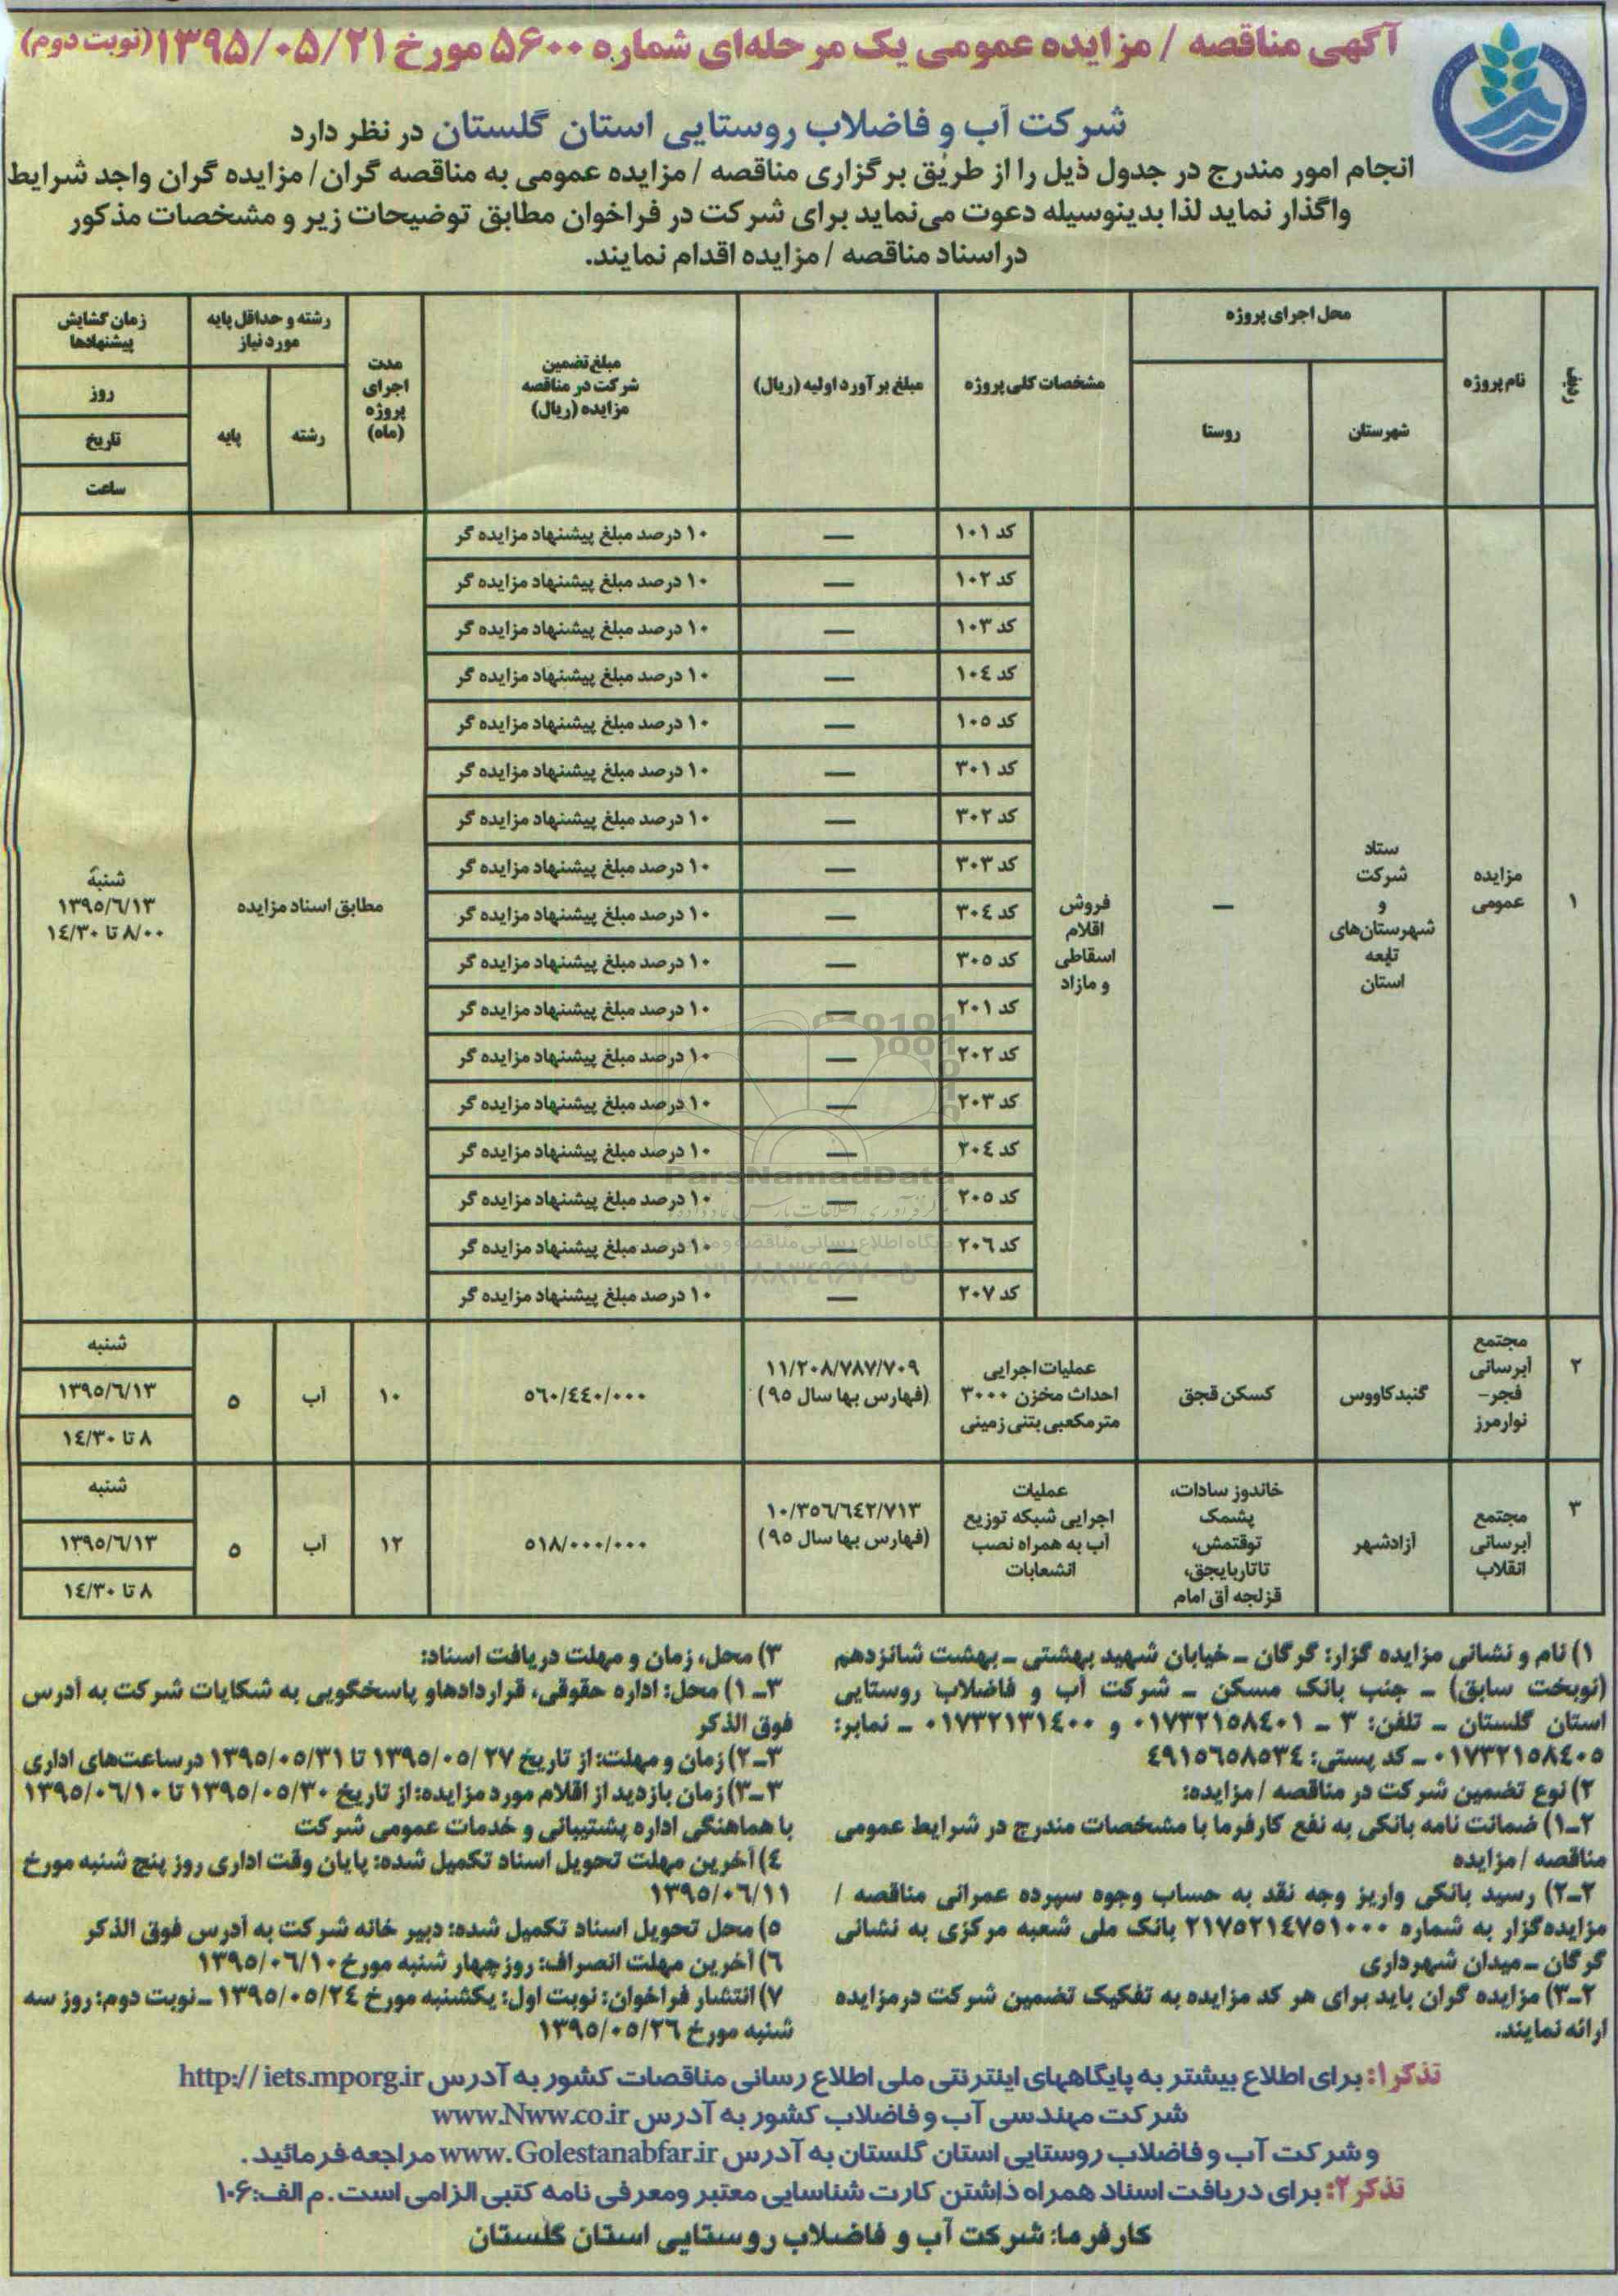 آگهی مناقصه / مزایده عمومی یک مرحله‌ای شماره ۵۶۰۰ مورخ ۱۳۹۵/۰۵/۲۱ (نوبت دوم)
شرکت آب و فاضلاب روستایی استان گلستان در نظر دارد
انجام امور مندرج در جدول ذیل را از طریق برگزاری مناقصه / مزایده عمومی به مناقصه گران/ مزایده گران واجد شرایط
واگذار نماید لذا بدینوسیله دعوت می‌نماید برای شرکت در فراخوان مطابق توضیحات زیر و مشخصات مذکور
در اسناد مناقصه / مزایده اقدام نمایند.
ردیف
نام پروژه
محل اجرای پروژه
شهرستان
روستا
مشخصات کلی پروژه
مبلغ برآورد اولیه (ریال)
مبلغ تضمین
شرکت در مناقصه
مزایده (ریال)
مدت
اجرای
پروژه
(ماه)
رشته و حداقل پایه
مورد نیاز
رشته
پایه
زمان گشایش
پیشنهادها
روز
تاریخ
ساعت
۱
مزایده
عمومی
ستاد
شرکت
و
شهرستان‌های
تابعه
استان
—
فروش
اقلام
اسقاطی
و مازاد
کد ۱۰۱ — ۱۰ درصد مبلغ پیشنهاد مزایده گر
کد ۱۰۲ — ۱۰ درصد مبلغ پیشنهاد مزایده گر
کد ۱۰۳ — ۱۰ درصد مبلغ پیشنهاد مزایده گر
کد ۱۰۴ — ۱۰ درصد مبلغ پیشنهاد مزایده گر
کد ۱۰۵ — ۱۰ درصد مبلغ پیشنهاد مزایده گر
کد ۳۰۱ — ۱۰ درصد مبلغ پیشنهاد مزایده گر
کد ۳۰۲ — ۱۰ درصد مبلغ پیشنهاد مزایده گر
کد ۳۰۳ — ۱۰ درصد مبلغ پیشنهاد مزایده گر
کد ۳۰۴ — ۱۰ درصد مبلغ پیشنهاد مزایده گر
کد ۳۰۵ — ۱۰ درصد مبلغ پیشنهاد مزایده گر
کد ۲۰۱ — ۱۰ درصد مبلغ پیشنهاد مزایده گر
کد ۲۰۲ — ۱۰ درصد مبلغ پیشنهاد مزایده گر
کد ۲۰۳ — ۱۰ درصد مبلغ پیشنهاد مزایده گر
کد ۲۰۴ — ۱۰ درصد مبلغ پیشنهاد مزایده گر
کد ۲۰۵ — ۱۰ درصد مبلغ پیشنهاد مزایده گر
کد ۲۰۶ — ۱۰ درصد مبلغ پیشنهاد مزایده گر
کد ۲۰۷ — ۱۰ درصد مبلغ پیشنهاد مزایده گر
مطابق اسناد مزایده
شنبه
۱۳۹۵/۶/۱۳
۸/۰۰ تا ۱۴/۳۰
۲
مجتمع
آبرسانی
فجر-
نوارمرز
گنبدکاووس
کسکن قجق
عملیات اجرایی
احداث مخزن ۳۰۰۰
مترمکعبی بتنی زمینی
۱۱/۲۰۸/۷۸۷/۷۰۹
(فهارس بها سال ۹۵)
۵۶۰/۴۴۰/۰۰۰
۱۰
آب
۵
شنبه
۱۳۹۵/۶/۱۳
۸ تا ۱۴/۳۰
۳
مجتمع
آبرسانی
انقلاب
آزادشهر
خاندوز سادات،
پشمک
توقتمش،
تاتاربایجق،
قزلجه آق امام
عملیات
اجرایی شبکه توزیع
آب به همراه نصب
انشعابات
۱۰/۳۵۶/۶۴۲/۷۱۳
(فهارس بها سال ۹۵)
۵۱۸/۰۰۰/۰۰۰
۱۲
آب
۵
شنبه
۱۳۹۵/۶/۱۳
۸ تا ۱۴/۳۰
۱) نام و نشانی مزایده گزار: گرگان ـ خیابان شهید بهشتی ـ بهشت شانزدهم
(نوبخت سابق) ـ جنب بانک مسکن ـ شرکت آب و فاضلاب روستایی
استان گلستان ـ تلفن: ۳ ـ ۰۱۷۳۲۱۵۸۴۰۱ و ۰۱۷۳۲۱۳۱۴۰۰ ـ نمابر:
۰۱۷۳۲۱۵۸۴۰۵ ـ کد پستی: ۴۹۱۵۶۵۸۵۳۴
۲) نوع تضمین شرکت در مناقصه / مزایده:
۲ـ۱) ضمانت نامه بانکی به نفع کارفرما با مشخصات مندرج در شرایط عمومی
مناقصه / مزایده
۲ـ۲) رسید بانکی واریز وجه نقد به حساب وجوه سپرده عمرانی مناقصه /
مزایده‌گزار به شماره ۲۱۷۵۲۱۴۷۵۱۰۰۰ بانک ملی شعبه مرکزی به نشانی
گرگان ـ میدان شهرداری
۲ـ۳) مزایده گران باید برای هر کد مزایده به تفکیک تضمین شرکت در مزایده
ارائه نمایند.
۳) محل، زمان و مهلت دریافت اسناد:
۳ـ۱) محل: اداره حقوقی، قراردادها و پاسخگویی به شکایات شرکت به آدرس
فوق الذکر
۳ـ۲) زمان و مهلت: از تاریخ ۱۳۹۵/۰۵/۲۷ تا ۱۳۹۵/۰۵/۳۱ در ساعت‌های اداری
۳ـ۳) زمان بازدید از اقلام مورد مزایده: از تاریخ ۱۳۹۵/۰۵/۳۰ تا ۱۳۹۵/۰۶/۱۰
با هماهنگی اداره پشتیبانی و خدمات عمومی شرکت
۴) آخرین مهلت تحویل اسناد تکمیل شده: پایان وقت اداری روز پنج شنبه مورخ
۱۳۹۵/۰۶/۱۱
۵) محل تحویل اسناد تکمیل شده: دبیر خانه شرکت به آدرس فوق الذکر
۶) آخرین مهلت انصراف: روز چهار شنبه مورخ ۱۳۹۵/۰۶/۱۰
۷) انتشار فراخوان: نوبت اول: یکشنبه مورخ ۱۳۹۵/۰۵/۲۴ ـ نوبت دوم: روز سه
شنبه مورخ ۱۳۹۵/۰۵/۲۶
تذکر۱: برای اطلاع بیشتر به پایگاههای اینترنتی ملی اطلاع رسانی مناقصات کشور به آدرس http://iets.mporg.ir
شرکت مهندسی آب و فاضلاب کشور به آدرس www.Nww.co.ir
و شرکت آب و فاضلاب روستایی استان گلستان به آدرس www.Golestanabfar.ir مراجعه فرمائید.
تذکر۲: برای دریافت اسناد همراه داشتن کارت شناسایی معتبر و معرفی نامه کتبی الزامی است. م الف: ۱۰۶
کارفرما: شرکت آب و فاضلاب روستایی استان گلستان
ParsNamadData